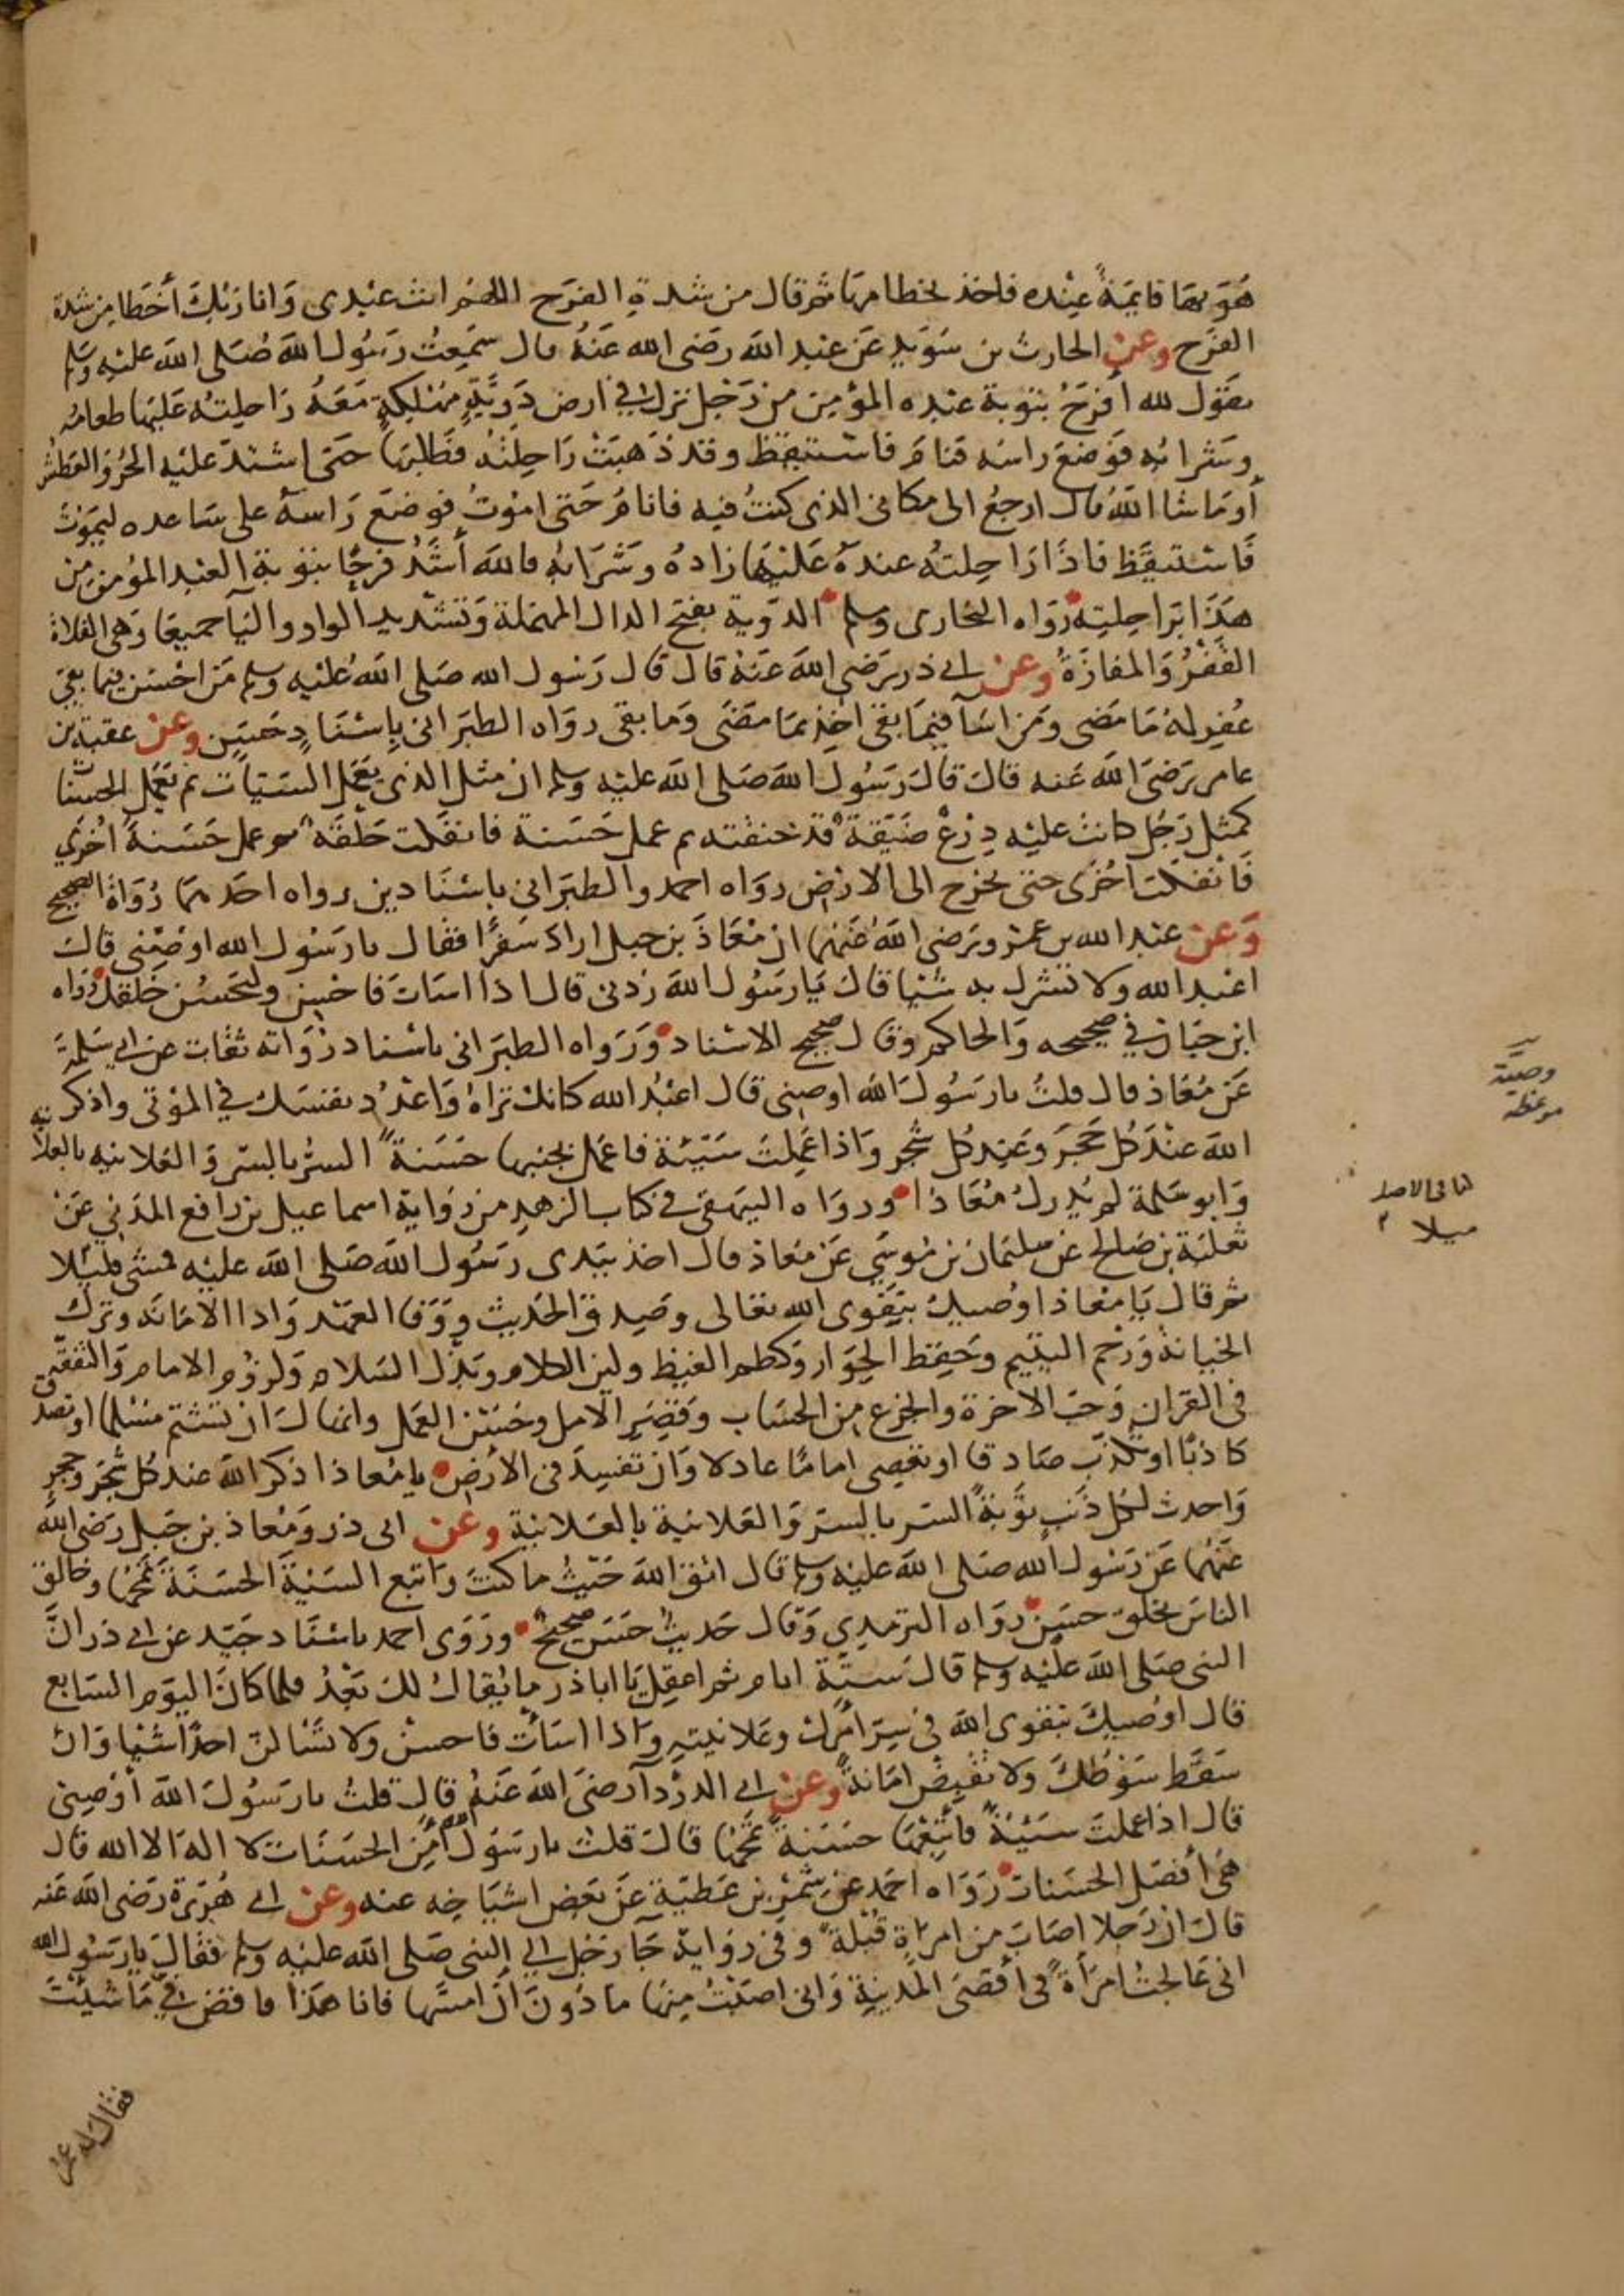 هُوَ بهَا قايمَةً عِنْده فاخذ بخطامهَا ثمرقال من شدةِ الفرَح اللهُم انت عَبْدى وَانا رَبُّكَ أخطَا مِن شدة
الفرَح وعن الحارث بن سُوَيد عَن عبد الله رَضى الله عَنهُ قال سَمِعتُ رَسُول الله صَلى الله عليْه وسلم
يقول لله افرَحُ بتوبة عبْده المؤمِن من رَجُل نزل في ارض دَوِّيَّةٍ مَهْلِكةٍ مَعَهُ رَاحِلِتهُ عَليهَا طعامه
وشرابه فوَضعَ راسَه فنامَ فاستيقظ وقد ذَهبَتْ رَاحِلتُهُ فطَلبَهَا حَتى اشتدّ عليْه الحرّ والعَطش
أومَا شا اللهُ قال ارجعُ الى مكانى الذى كنتُ فيه فانامُ حَتى امُوتُ فوضَعَ رَاسَهُ على سَاعده ليموت
فَاستيقَظ فاذَا رَاحِلتهُ عندَهُ عَليْهَا زادهُ وشرَابه فالله أشَدُّ فرحًا بتوبة العَبد المؤمِن مِن
هذَا برَاحِلتِه روَاه البخارى ومسلم الدوّية بفتح الدال المهمَلة وَتشديد الواو واليَا جميعًا وَهى الفَلاة
القَفْرُ وَالمفازَةُ وعن ابي ذر رَضى الله عَنهُ قال قال رَسُول الله صَلى الله عَليْه وسلم مَن احْسَن فيما بقى
غُفِر له مَا مَضى ومَن اسَآ فيمَا بقى اخِذ بمَا مَضَى وَما بقى روَاه الطبَرانى بإسْنَادٍ حَسَنٍ وعن عقبة بن
عامر رَضىَ الله عَنه قالَ قالَ رَسُول الله صَلى الله عليْه وسلم ان مثل الذى يَعمَل السَيّات ثم يَعمَل الحسنات
كمثل رَجُل كانت عليْه دِرْعٌ ضَيّقة قد خنقته ثم عمل حَسَنة فانفكت حَلْقَة ثم عمل حَسَنةً اُخرَى
فَانْفكت اُخْرَى حتى يخرج الى الارْض روَاه احمد والطبَرانى باسْنَادين رواه احَدهمَا رُوَاة الصحيح
وَعن عبْد الله بن عَمْرو رَضى الله عَنهُمَا ان مُعَاذ بن جبل ارادَ سَفَرًا فقال يا رَسُول الله اوْصِنى قالَ
اعْبد الله ولا تشرك به شيْا قالَ يَا رَسُول الله زدنى قال اذَا اسَات فَاحْسِن وليَحسُن خلقك رَوَاه
ابن حِبَان في صَحيحه وَالحاكم وقال صحيح الاسْناد وَرَوَاه الطبَرانى باسْناد رُوَاته ثقات عن ابي سَلمَة
عَن مُعَاذ قال قلتُ يا رَسُولَ الله اوصِنى قال اعْبُد الله كانك تراهُ وَاعْدُد نفسَك في المَوْتى واذكر
اللهَ عِنْدَ كُل حَجَرَ وعَنِد كل شَجر وَاذا عَمِلتَ سَيّئَة فاعمَل بجنبها حَسَنةً السِّرُّ بالسِّر وَالعَلانيه بالعلانية
وَابو سَلمة لم يُدرك مُعَاذا وروَاه البيهقى في كتاب الزهد من رِوَاية اسماعيل بن رَافع المدَني عَنْ
ثعلبَة بن صَالح عن سليمَان بن مُوسَى عَن مُعاذ قال اخذ بيَدى رَسُول الله صَلى الله عليْه فمشى مَيْلا
ثم قال يَا مُعاذ اوُصيك بتقوى الله تعالى وصِدق الحَديث ووَفا العهْد وَادا الامَانَه وترك
الخيانة وَرَحْم اليَتيم وَحفِظ الجوَار وكظم الغيظ ولين الكلام وبَذل السَلام وَلزوُم الامام وَالتفقه
في القرَان وَحبّ الاخرَة والجزع من الحسَاب وَقِصَرِ الامَل وحسْن العَمَل وانهَاك ان تشتم مُسْلما او تصدق
كاذبًا او تكذِّبَ صَادقا او تعصى امامًا عادلا وَان تفسِدَ في الارْض يا مُعاذ اذكر الله عند كُل شَجَر وحجر
وَاحدث لكُل ذَنب توْبةً السر بالسر وَالعَلانية بالعَلانيةِ وعن ابى ذر وَمُعاذ بن جَبل رَضى الله
عَنْهما عَن رَسُول الله صَلى الله عَليْه وسلم قال اتق الله حَيْثُ ما كنتَ وَاتبع السَيئة الحسَنَة تَمحُها وخالق
الناسَ بخلق حسَنٍ روَاه الترمدي وَقال حَديث حَسَن صحيح وَرَوَى احمد باسْنَاد جَيّد عن ابي ذر انَّ
النبى صَلى الله عَليْه وسلم قال سَتّة ايام ثم اعقِل يَا اباذر ما يُقال لك بَعْدُ فلما كانَ اليَوم السَابع
قال اوُصيكَ بتقوى الله في سِرّ امرك وعَلانيَتِهِ وَاذا اسَأت فاحسن ولا تَسْالن احَدًا شيْا وَان
سَقَط سَوْطكَ ولا تقبضْ امَانةً وعن ابي الدرْدآ رضىَ الله عَنهُ قال قلتُ يا رَسُولَ الله أوْصِنى
قال اذا عملتَ سَيّئَةً فاتبِعْهَا حسَنةً تَمحُهَا قالَ قلتُ يا رَسُول الله أمِنَ الحسَنَات لا اله الا الله قال
هىَ أفضَل الحسَنات رَوَاه احمد عن شِمْر بن عَطيّة عَن بَعض اشيَاخِه عنه وعن ابي هُرَيرَة رَضى الله عَنه
قالَ ان رَجلا اصَابَ من امرَاةٍ قُبْلةً وفى روَايةٍ جَآ رَجُل الي النبى صَلى الله عليْه وسلم فقالَ يا رَسُول الله
انى عَالجتُ امرَأةً في أقصَى المَدينةِ وَانى اصَبْتُ مِنهَا مَا دُونَ أن امسَّهَا فانا هَذا فاقض فىَّ مَا شئتَ
وصيّة
موعظه
كذا في الاصل
ميلا
فقال له عمر